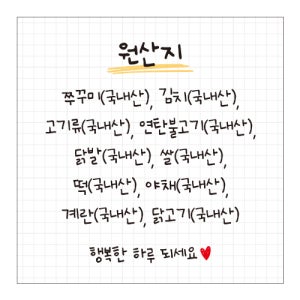 원산지
쭈꾸미(국내산), 김치(국내산),
고기류(국내산), 연탄불고기(국내산),
닭발(국내산), 쌀(국내산),
떡(국내산), 야채(국내산),
계란(국내산), 닭고기(국내산)
행복한 하루 되세요♥